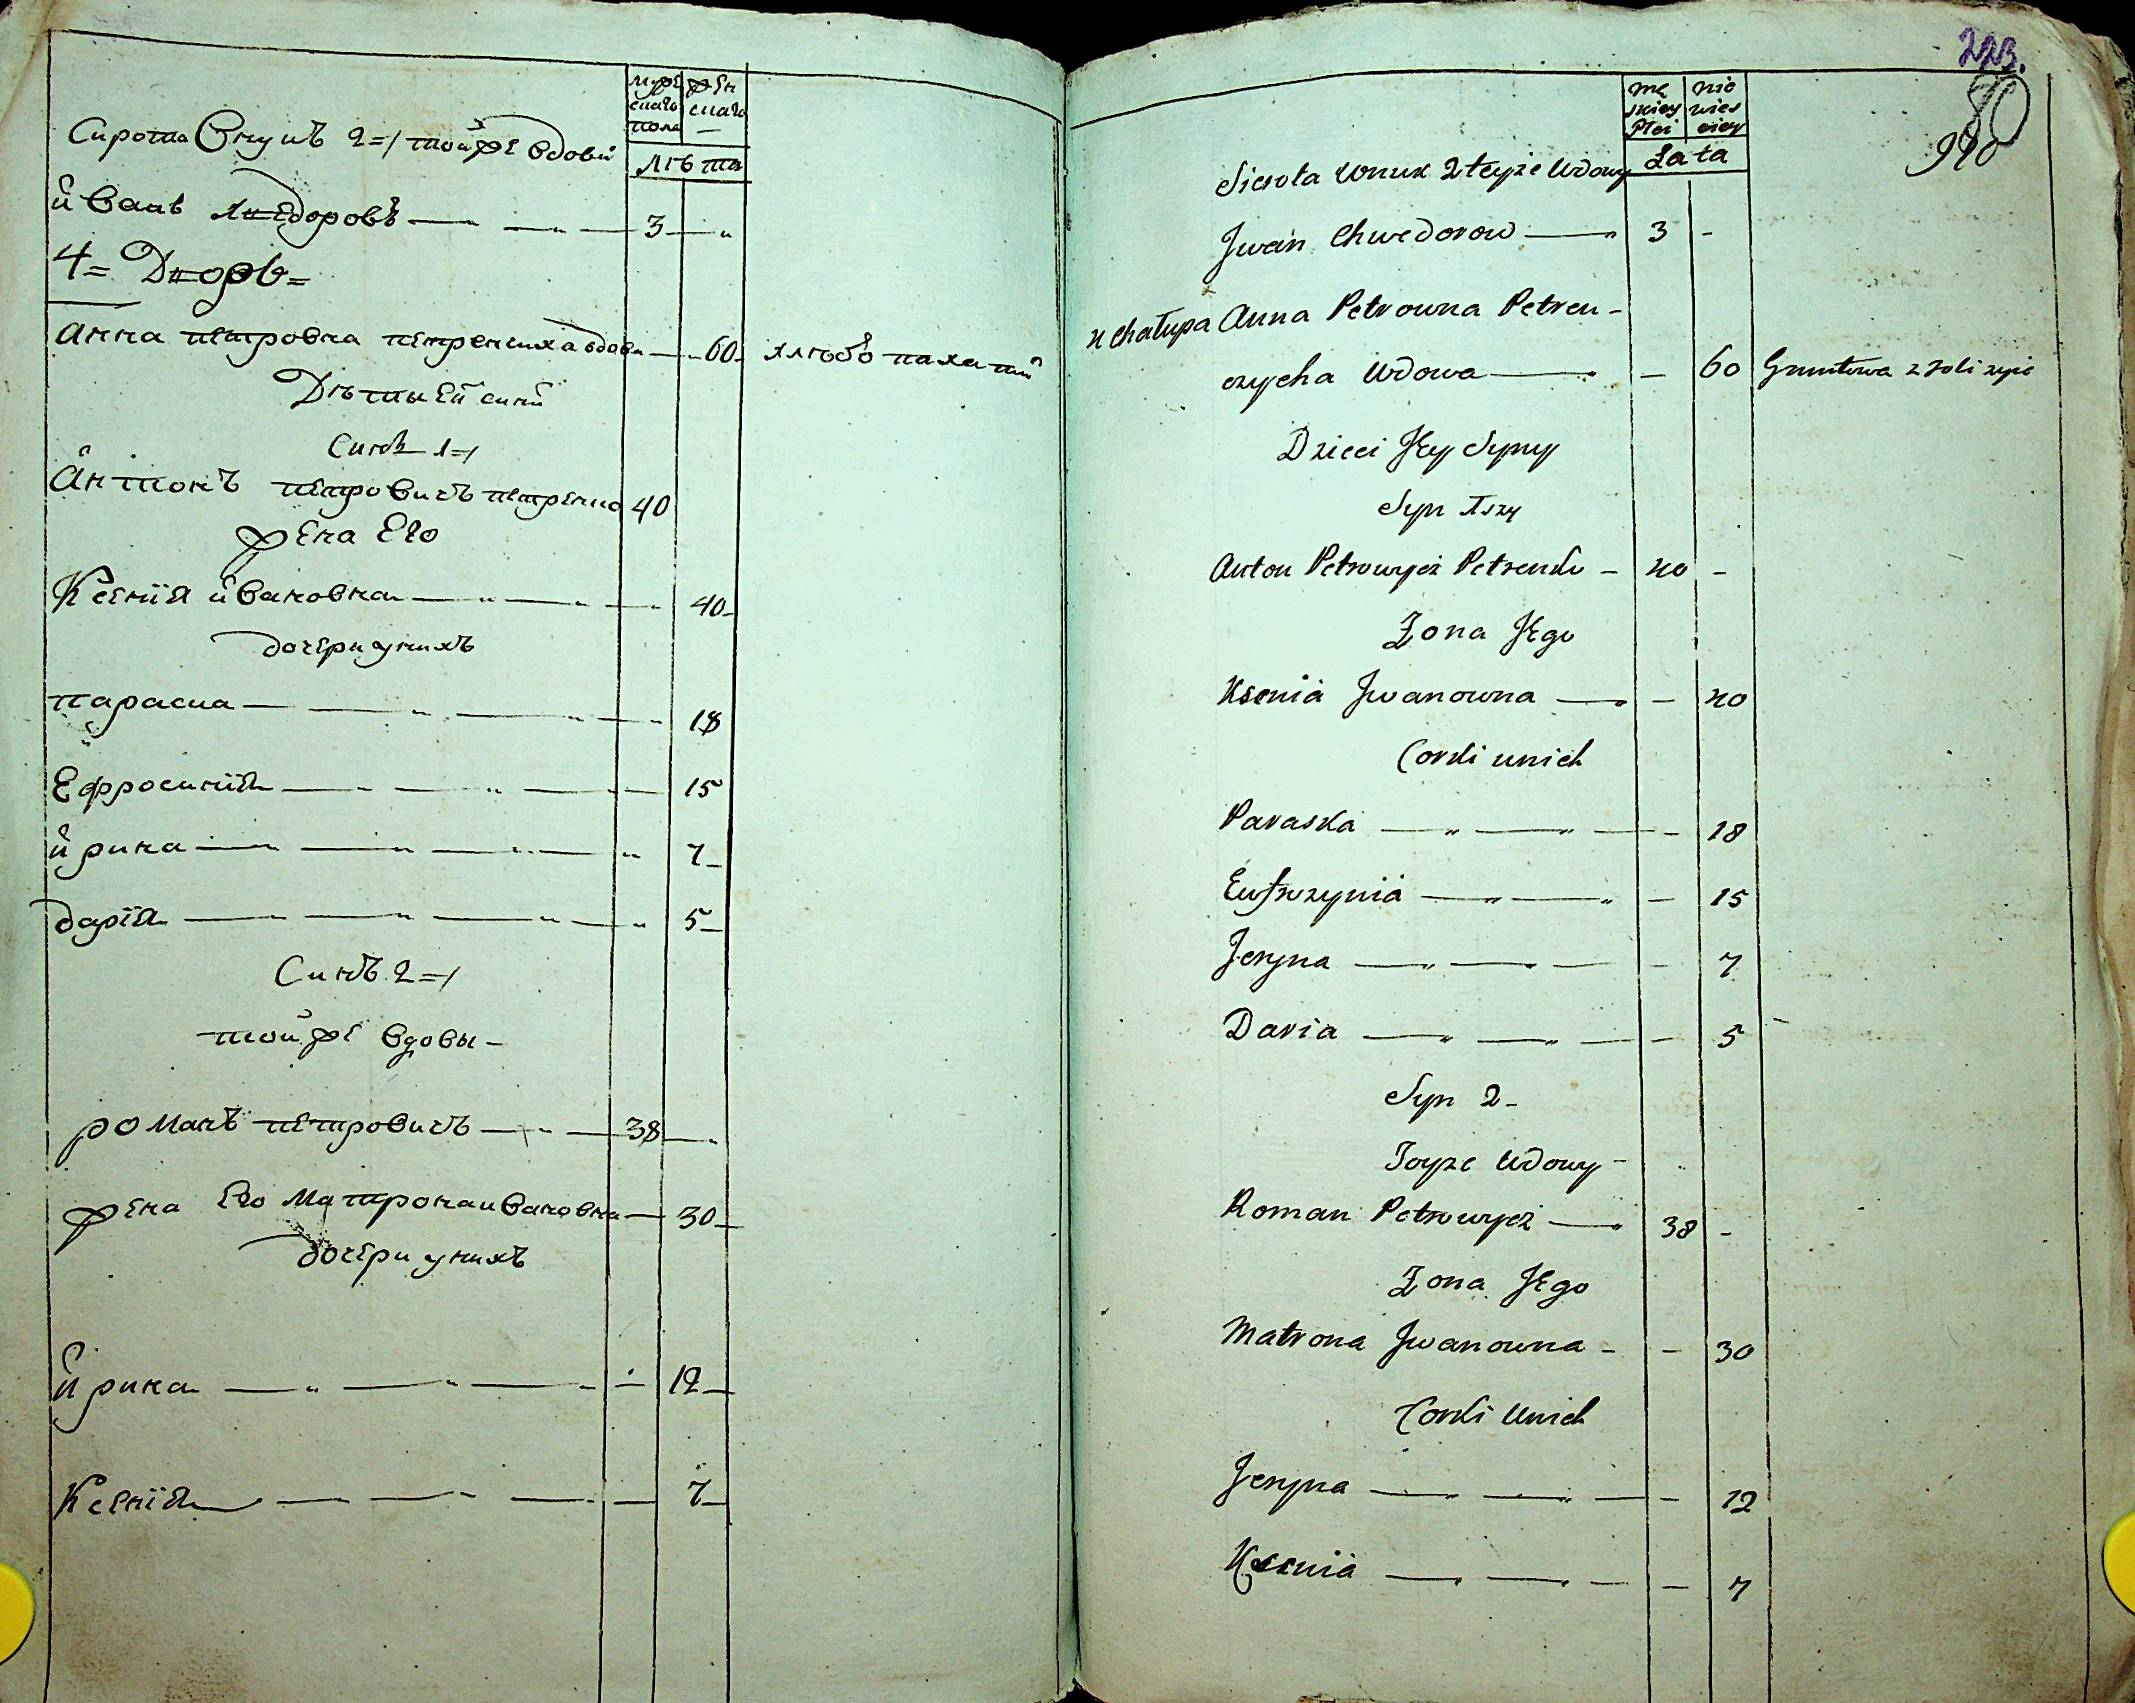 мужескагѡ пола
женскагѡ
лѣта
Сирота Внукъ 2=/ той же вдовы
Иванъ Хведоровъ 3
4= Дворъ=
Анна петровна петренчиха вдова 60 хлѣбо пахатный
Дѣти Ей сины
Синъ 1=/
Антонъ петровичъ петренко 40
жена Его
Ксенїя Ивановна 40
дочери у нихъ
параска 18
Ефросинїя 15
Ирина 7
дарїя 5
Синъ 2=/
той же вдовы
романъ петровичъ 38
жена Его Матрона Ивановна 30
дочери у нихъ
Ирина 12
Ксенїя 7
223.
80
940
mę skiey Płci
nie wies ciey
Lata
Sierota Wnuk 2 teyże Wdowy
Jwan Chwedorow 3 -
4 chałupa Anna Petrowna Petren-
czycha Wdowa - 60 Gruntowa z roli żyie
Dzieci Jey Syny
Syn 1szy
Anton Petrowycz Petrenko - 40 -
Zona Jego
Ksenia Jwanowna - 40
Corki unich
Paraska - 18
Eufrozynia - 15
Jeryna - 7
Daria - 5
Syn 2-
Toyże Wdowy -
Roman Petrowycz 38 -
Zona Jego
Matrona Jwanowna - - 30
Corki Unich
Jeryna - 12
Ksenia - 7